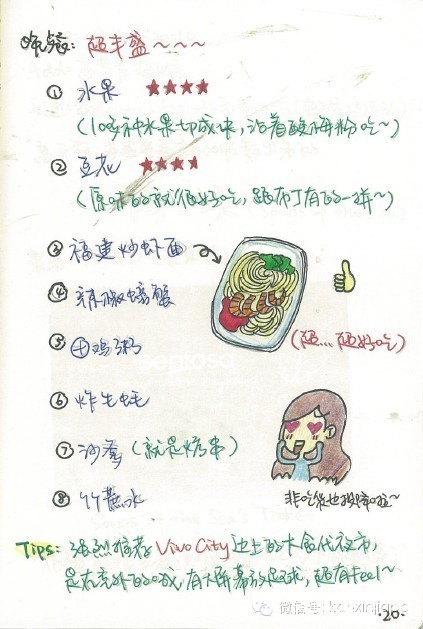 晚餐：超丰盛~~~~
① 水果 ★★★★
(10多种水果切成块，沾着酸梅粉吃~)
② 豆花 ★★★★
(原味的就很好吃，跟布丁有的一拼~)
③ 福建炒虾面
④ 辣椒螃蟹
(超...超好吃)
⑤ 田鸡粥
⑥ 炸生蚝
⑦ 沙爹 (就是烤串)
⑧ 竹蔗水
非吃货也被撑啦~
Tips: 强烈推荐 Vivo City 边上的大食代夜市，
是在室外的哦，有大屏幕放足球，超有feel~
微信号：
·20·